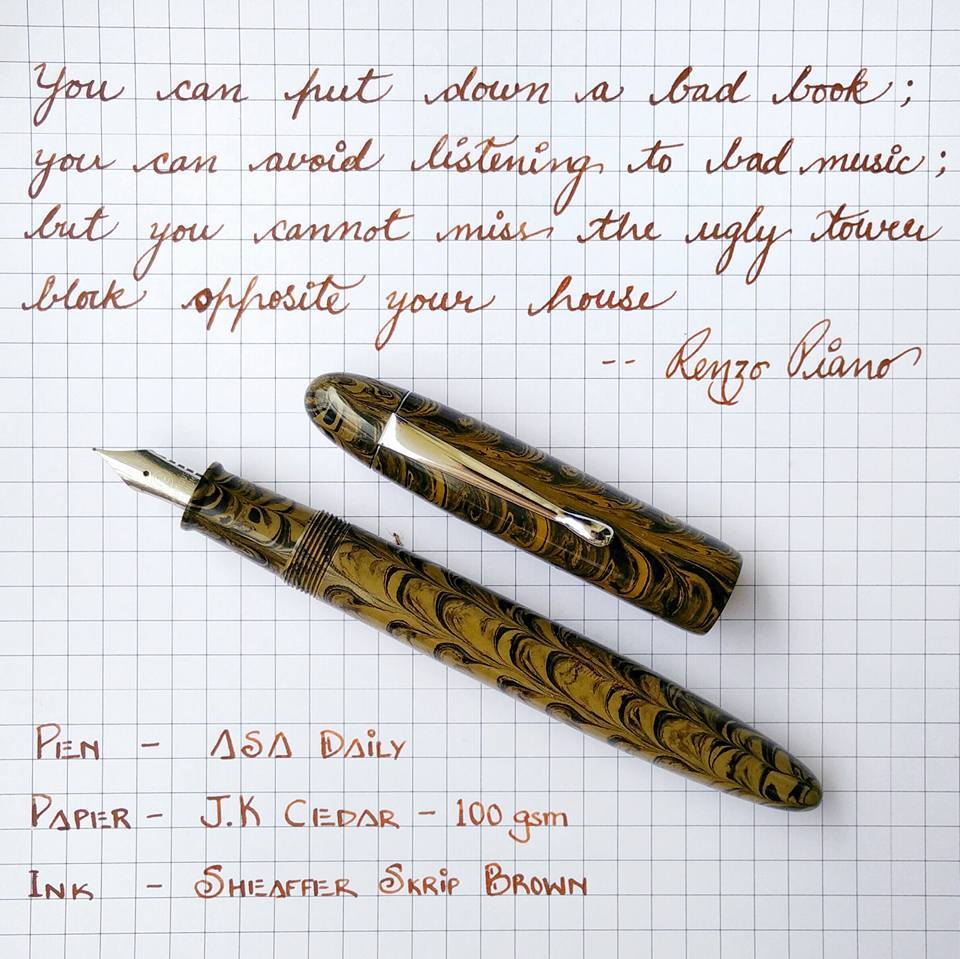 You can put down a bad book;
you can avoid listening to bad music;
but you cannot miss the ugly tower
block opposite your house
-- Renzo Piano
PEN - ASA DAiLY
PAPER - J.K CEDAR - 100 gsm
INK - SHEAFFER SKRiP BROWN